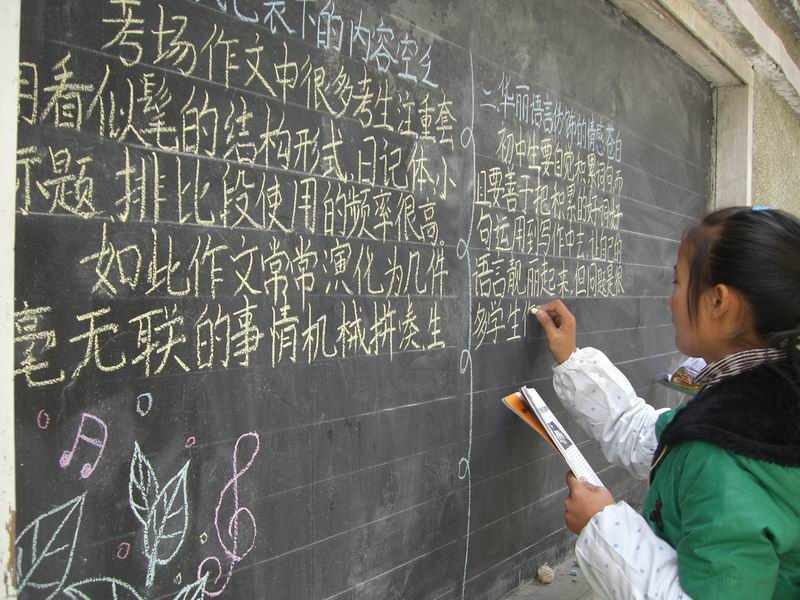 式包裹下的内容空乏
考场作文中很多考生注重套
用看似髦的结构形式,日记体,小
标题,排比段使用的频率很高。
如此作文常常演化为几件
毫无联的事情机械拼凑生
二.华丽语言粉饰的情感苍白
初中生要自觉积累词句而
且要善于把积累的好词好
句运用到写作中去,让自己的
语言靓丽起来,但问题是很
多学生